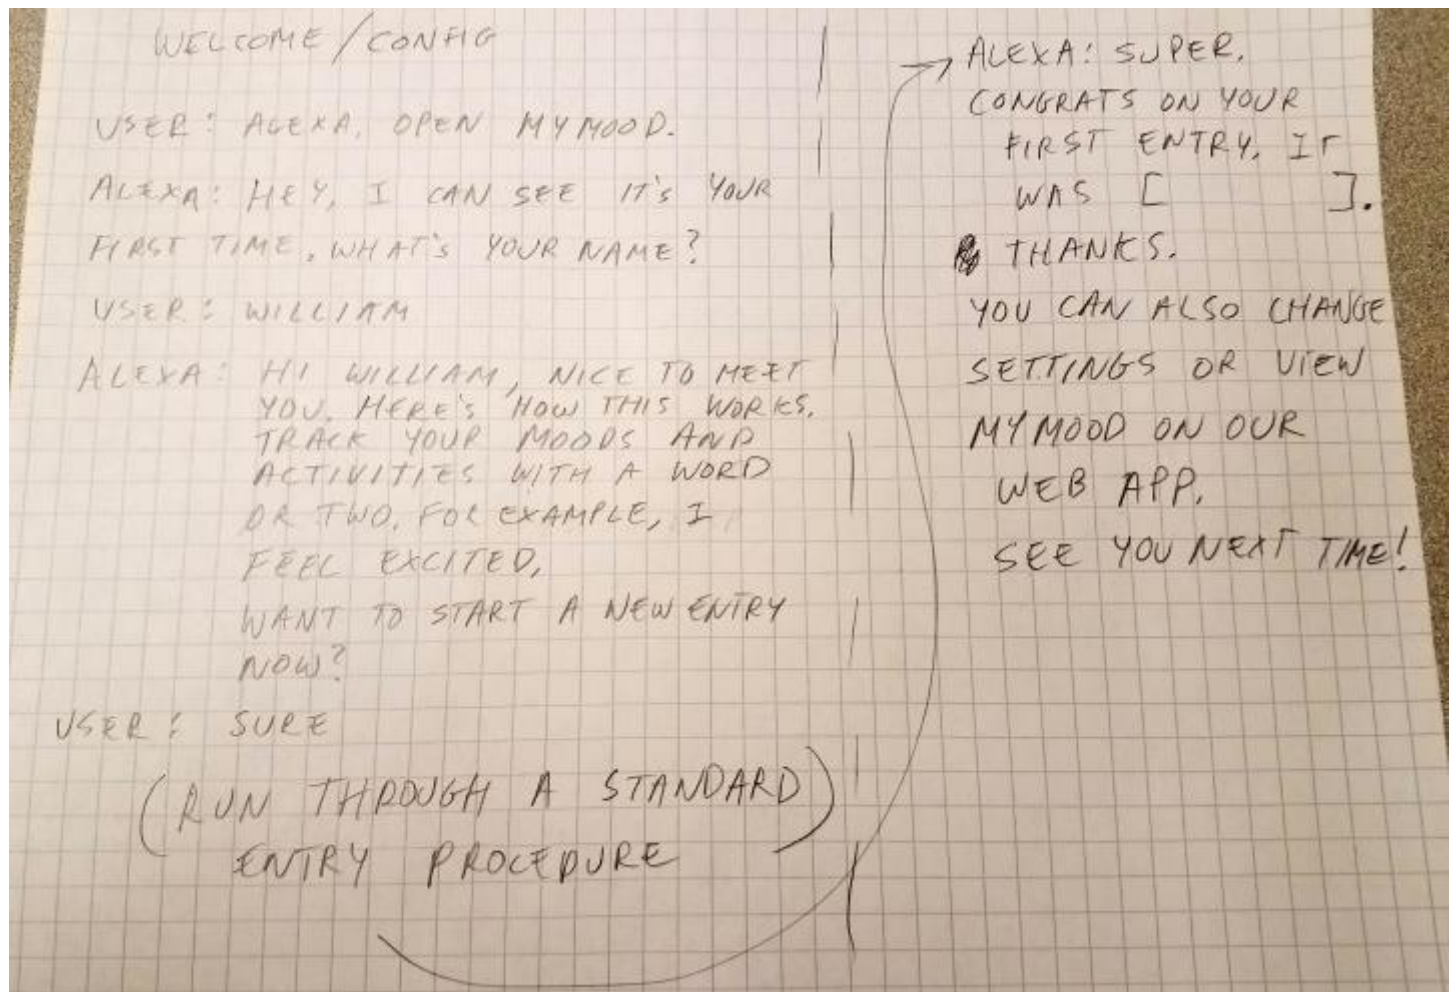 WELCOME/CONFIG
USER: ALEXA, OPEN MY MOOD.
ALEXA: HEY, I CAN SEE IT'S YOUR
FIRST TIME, WHAT'S YOUR NAME?
USER: WILLIAM
ALEXA: HI WILLIAM, NICE TO MEET
YOU. HERE'S HOW THIS WORKS.
TRACK YOUR MOODS AND
ACTIVITIES WITH A WORD
OR TWO. FOR EXAMPLE, I
FEEL EXCITED.
WANT TO START A NEW ENTRY
NOW?
USER: SURE
(RUN THROUGH A STANDARD
ENTRY PROCEDURE)
ALEXA: SUPER.
CONGRATS ON YOUR
FIRST ENTRY. IT
WAS [ ].
THANKS.
YOU CAN ALSO CHANGE
SETTINGS OR VIEW
MY MOOD ON OUR
WEB APP.
SEE YOU NEXT TIME!